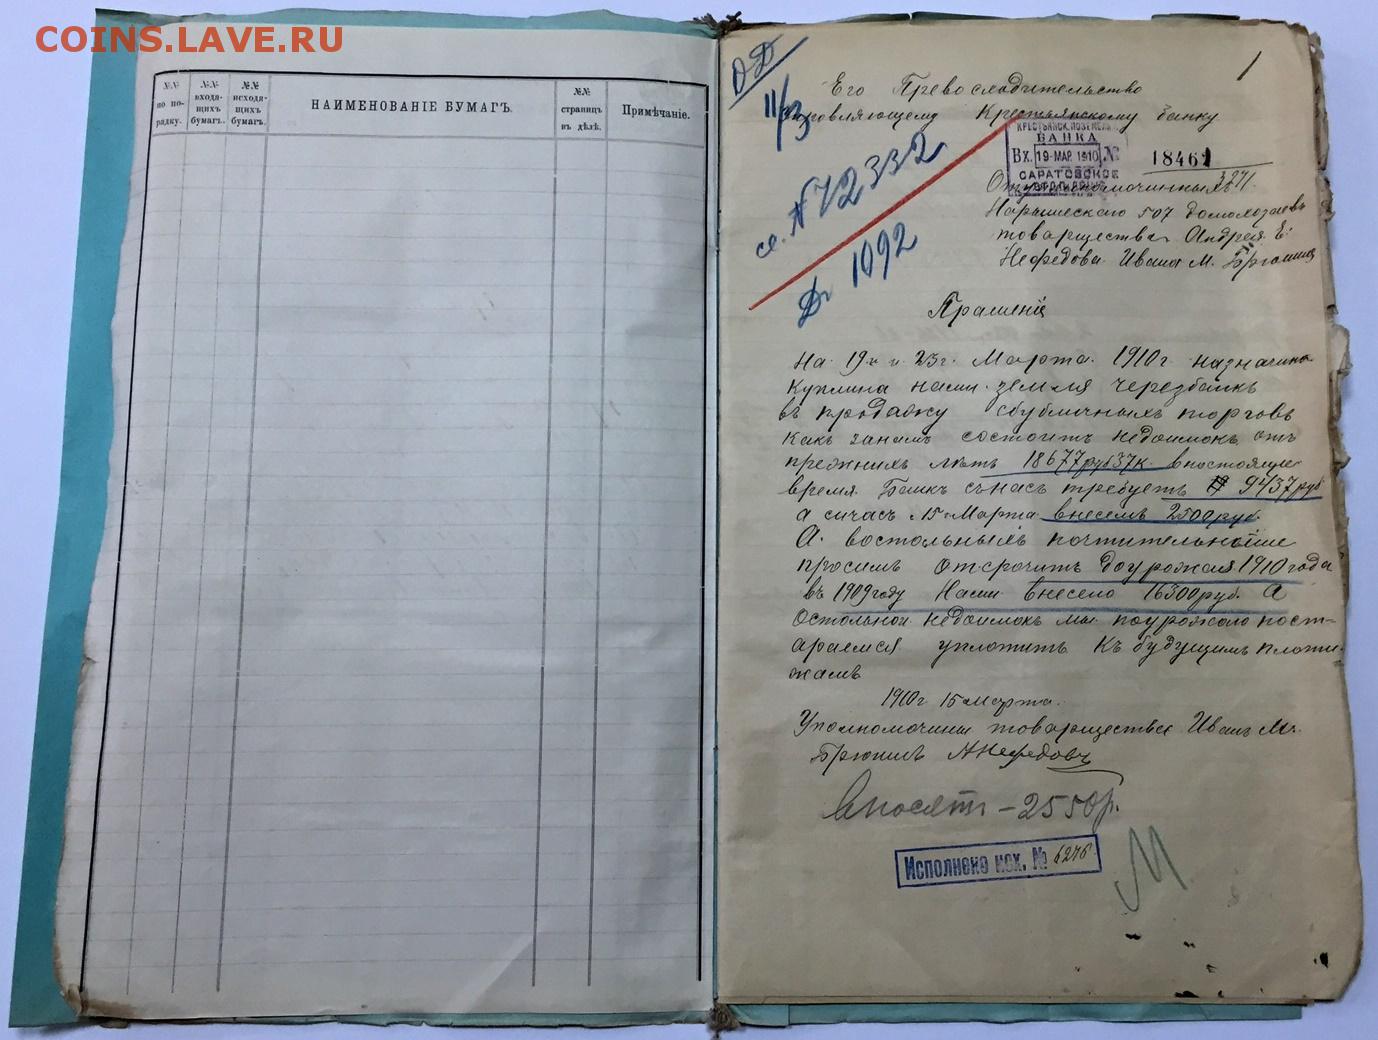 COINS.LAVE.RU
№№ по порядку.
№№ входящихъ бумагъ.
№№ исходящихъ бумагъ.
НАИМЕНОВАНІЕ БУМАГЪ.
№№ страницъ въ дѣлѣ.
Примѣчаніе.
1
О-Д
11/3
Его Превосходительство
Крестьянскому банку
КРЕСТЬЯНСК. ПОЗЕМЕЛЬН.
БАНКА
Вх. 19 МАР. 1910 №
18461
САРАТОВСКОЕ
ОТДѢЛЕНІЕ
3271
с. №72332
Д 1092
507 домохозаевъ
товарищества Андрея Е.
Нефедова Ивана М.
Прашеніе
На 19 и 23 г. Марта 1910 г назначина
Куплина нами земля черезбанкъ
въ продажу сбубличныхъ торговъ
Какъ занамъ состоитъ недоимокъ отъ
прежнихъ лѣтъ 18677 руб 37 к. внастоящие
время Банкъ снасъ требуетъ 9437 руб
а сичасъ 15 Марта внесемъ 2500 руб.
А востольныхъ почтительнейше
просимъ отсрочить доурожая 1910 года
въ 1909 году Нами внесено 16300 руб. А
Остольной недоимокъ мы поурожаю пост-
араемся уплотить Къ будущимъ плоти-
жамъ
1910 г 15 Марта.
товарищества Иванъ М.
АНефедовъ
Вносятъ - 2550 р.
Исполнено исх. № 6276
М